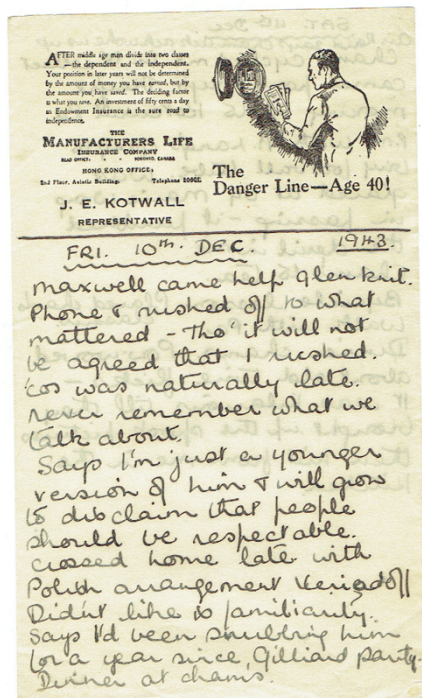 AFTER middle age men divide into two classes
—the dependent and the independent.
Your position in later years will not be determined
by the amount of money you have earned, but by
the amount you have saved. The deciding factor
is what you save. An investment of fifty cents a day
in Endowment Insurance is the sure road to
independence.
THE
MANUFACTURERS LIFE
INSURANCE COMPANY
HEAD OFFICE: TORONTO, CANADA
HONG KONG OFFICE:
2nd Floor, Asiatic Building. Telephone
J. E. KOTWALL
REPRESENTATIVE
The
Danger Line—Age 40!
FRI. 10th. DEC. 1943.
Maxwell came help Glen knit.
Phone & rushed off to what
mattered - tho' it will not
be agreed that I rushed.
'cos was naturally late.
never remember what we
talk about.
Says I'm just a younger
version of him & will grow
to disclaim that people
should be respectable.
Crossed home late with
Polish arrangement
Didn't like is familiarity.
Says I'd been snubbing him
for a year since, Gilliard party.
Dinner at chams.